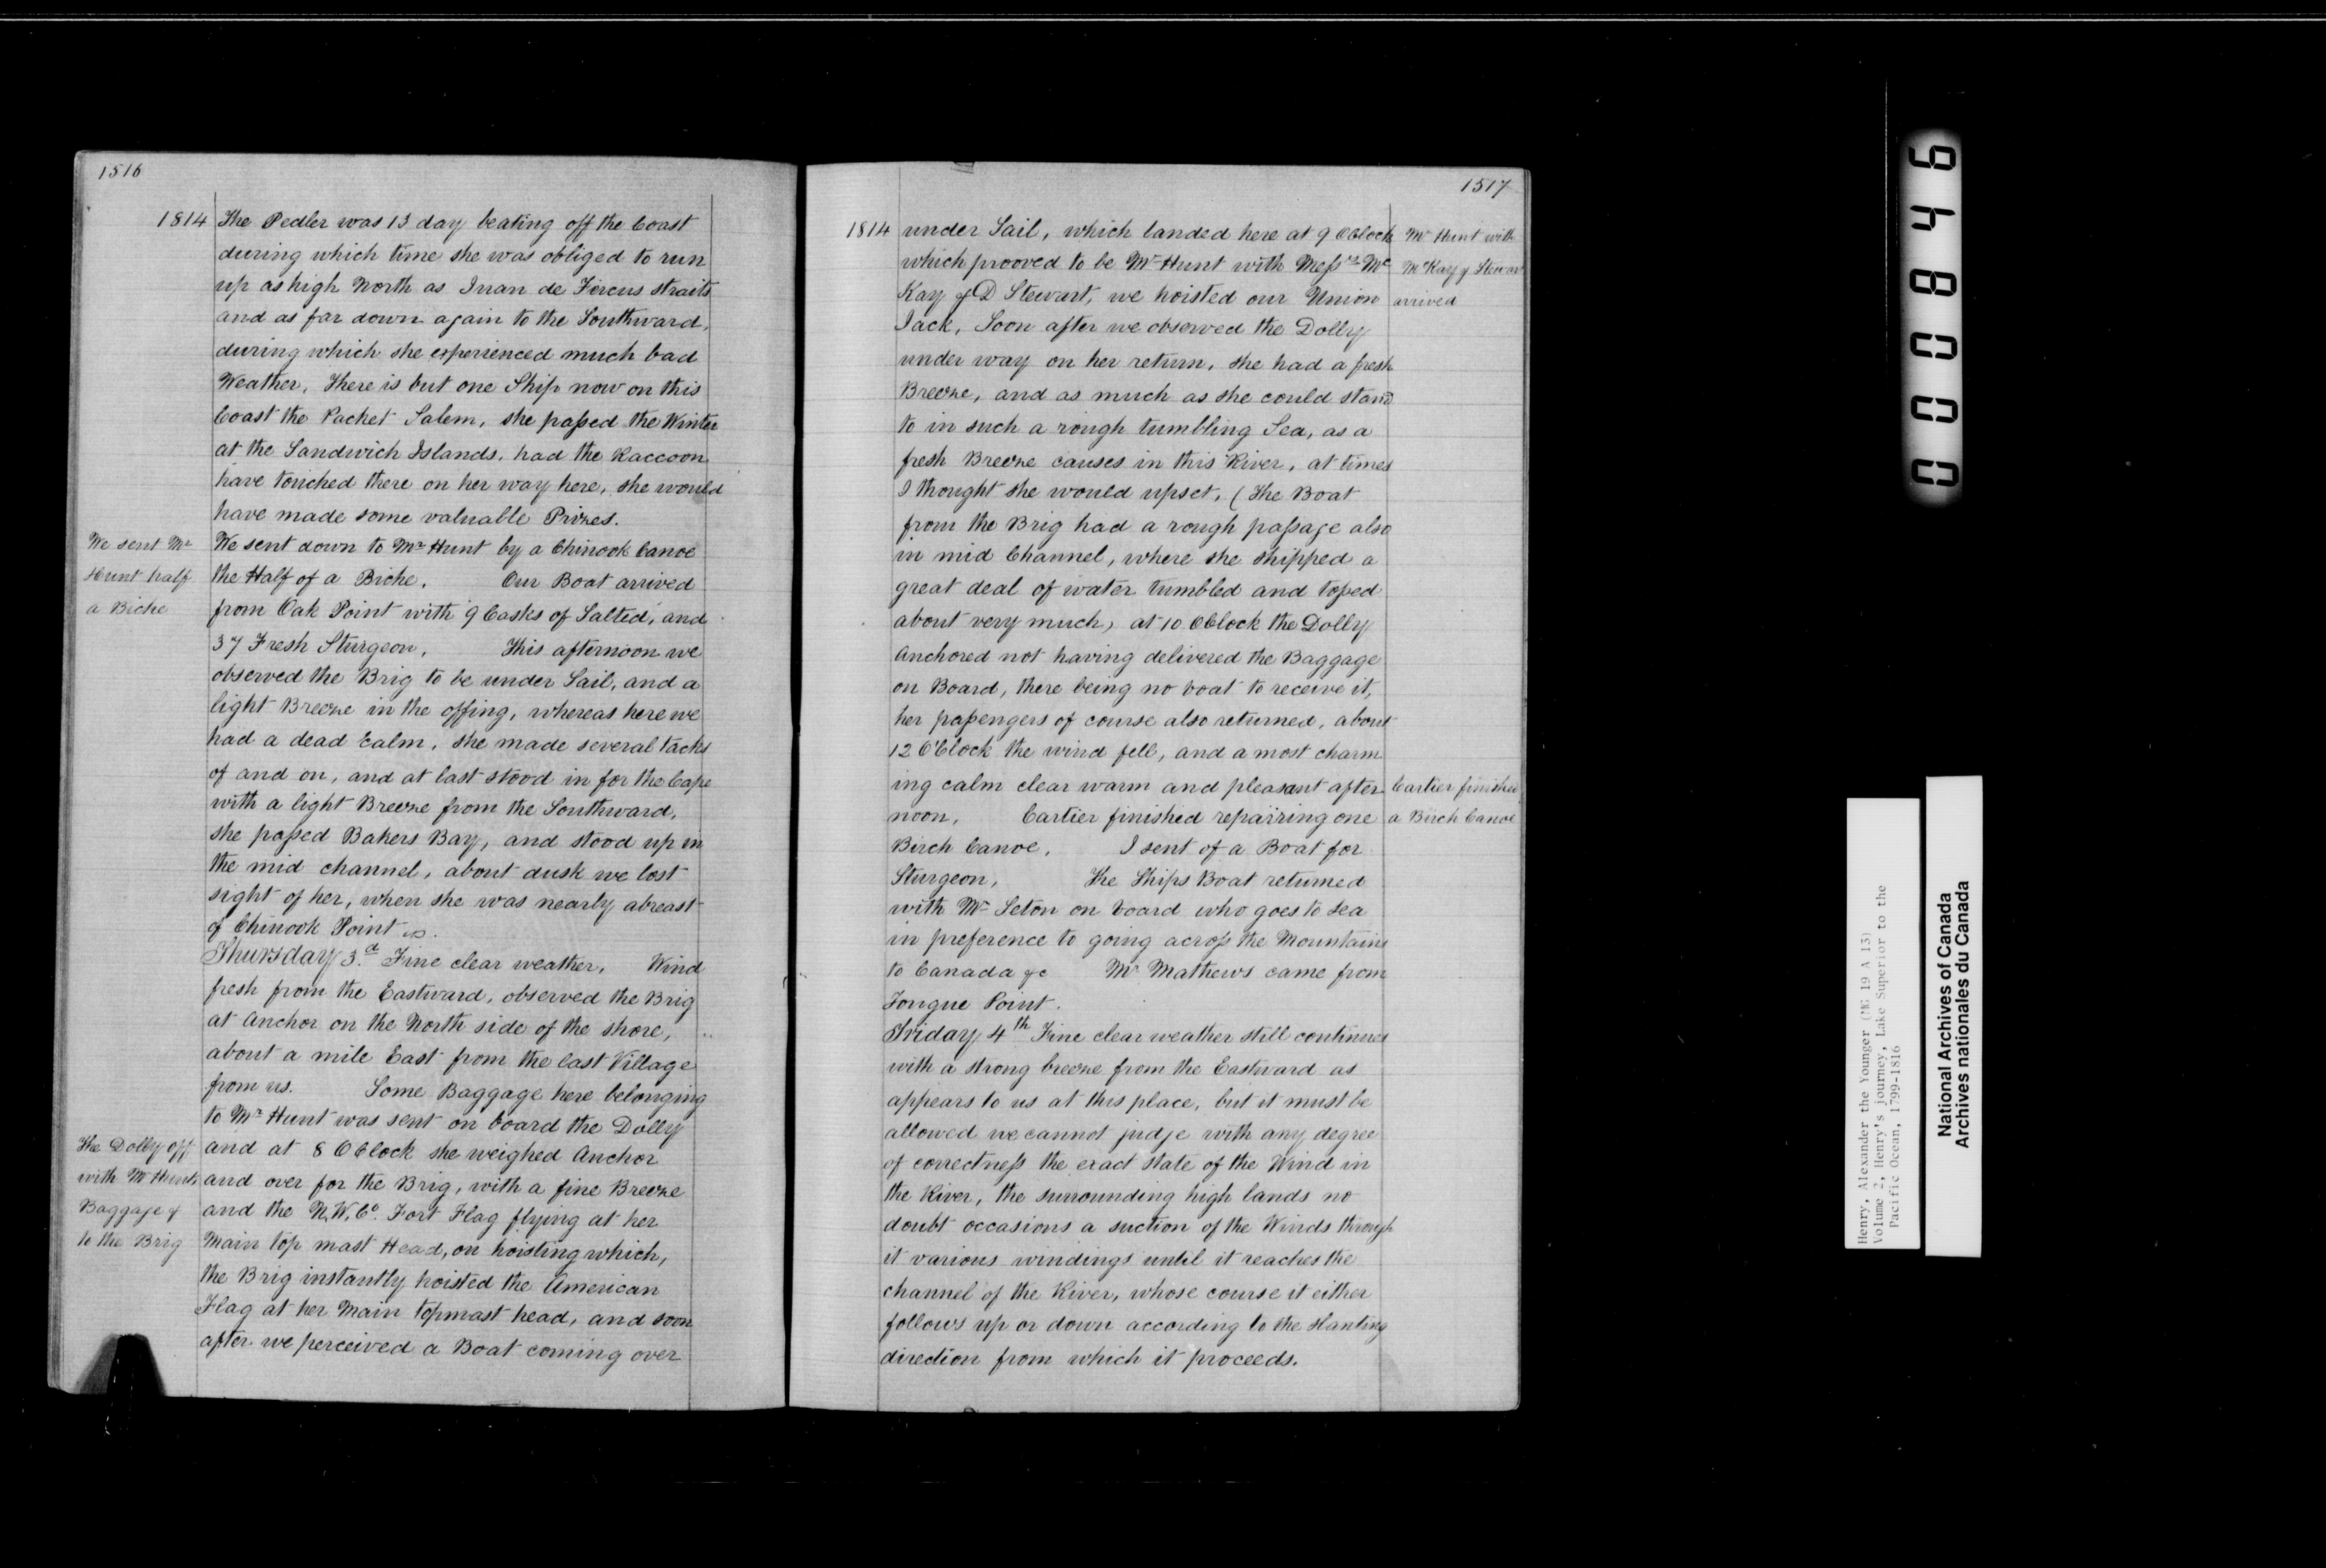 1516
1814 The Pedler was 13 day beating off the Coast
during which time she was obliged to run
up as high North as Juan de Fircus straits
and as far down again to the Southward,
during which she experienced much bad
Weather, There is but one Ship now on this
Coast the Packet Salem, she passed the Winter
at the Sandwich Islands, had the Raccoon
have touched there on her way here, she would
have made some valuable Prizes.
We sent Mr
Hunt half
a Biche
We sent down to Mr Hunt by a Chinook Canoe
the Half of a Biche. Our Boat arrived
from Oak Point with 9 Casks of Salted, and
37 Fresh Sturgeon, This afternoon we
observed the Brig to be under Sail, and a
light Breeze in the offing, whereas here we
had a dead Calm, she made several tacks
of and on, and at last stood in for the Cape
with a light Breeze from the Southward,
she passed Bakers Bay, and stood up in
the mid channel, about dusk we lost
sight of her, when she was nearly abreast
of Chinook Point
Thursday 3.d Fine clear weather, Wind
fresh from the Eastward, observed the Brig
at Anchor on the North side of the shore,
about a mile East from the last Village
from us. Some Baggage here belonging
to Mr Hunt was sent on board the Dolly
The Dolly off
with Mr Hunts
Baggage &
to the Brig
and at 8 OClock she weighed Anchor
and over for the Brig, with a fine Breeze
and the N.W.Co. Fort Flag flying at her
Main top mast Head, on hoisting which,
the Brig instantly hoisted the American
Flag at her Main topmast head, and soon
after we perceived a Boat coming over
1517
1814 under Sail, which landed here at 9 OClock
which prooved to be Mr Hunt with Messrs Mc
Kay & D Stewart, we hoisted our Union
Mr Hunt with
McKay & Stewar
arrived
Jack, Soon after we observed the Dolly
under way on her return, she had a fresh
Breeze, and as much as she could stand
to in such a rough tumbling Sea, as a
fresh Breeze causes in this River, at times
I thought she would upset, (The Boat
from the Brig had a rough passage also
in mid Channel, where she shipped a
great deal of water tumbled and tosed
about very much, at 10 OClock the Dolly
Anchored not having delivered the Baggage
on Board, there being no boat to receive it,
her passengers of course also returned, about
12 O'Clock the wind fell, and a most charm
ing calm clear warm and pleasant after
noon, Cartier finished repairing one
Cartier finished
a Birch Canoe
Birch Canoe, I sent of a Boat for
Sturgeon, The Ships Boat returned
with Mr Seton on board who goes to sea
in preference to going across the Mountains
to Canada &c Mr Mathews came from
Tongue Point.
Friday 4th Fine clear weather still continues
with a strong breeze from the Eastward as
appears to us at this place, but it must be
allowed we cannot judge with any degree
of correctness the exact state of the Wind in
the River, the surrounding high lands no
doubt occasions a suction of the Winds through
it various windings until it reaches the
channel of the River, whose course it either
follows up or down according to the slanting
direction from which it proceeds.
000846
Henry, Alexander the Younger (MG 19 A 13)
Volume 2, Henry's journey, Lake Superior to the
Pacific Ocean, 1799-1816
National Archives of Canada
Archives nationales du Canada